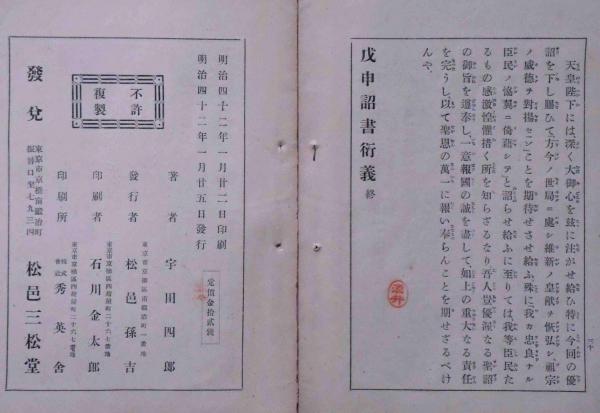 天皇陛下には、深く大御心を玆に注がせ給ひ特に今回の優
詔を下し賜ひて「方今ノ世局ニ處シ維新ノ皇猷ヲ恢弘シ祖宗
ノ威德ヲ對揚セン」ことを期待せさせ給ふ、殊に「我カ忠良ナル
臣民ノ協翼ニ倚藉シテ」と詔らせ給ふに至りては、我等臣民た
るもの感激惶懼措く所を知らざるなり、吾人豈優渥なる聖詔
の御旨を遵奉し、一意報國の誠を盡して、如上の重大なる責任
を完うし、以て聖恩の萬一に報い奉らんことを期せざるべけ
んや。
戊申詔書衍義 終
三十
明治四十二年一月廿二日印刷
明治四十二年一月廿五日發行
定價金拾貳錢
不許
複製
著者 宇田四郎
東京市京橋區南鍛冶町一番地
發行者 松邑孫吉
東京市京橋區西紺屋町二十六七番地
印刷者 石川金太郎
東京市京橋區西紺屋町二十六七番地
印刷所 株式會社 秀英舍
發兌
東京市京橋南鍛冶町
振替口座七九三四
松邑三松堂